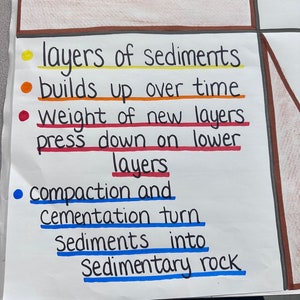 layers of sediments
builds up over time
Weight of new layers
press down on lower
layers
compaction and
Cementation turn
Sediments into
Sedimentary rock